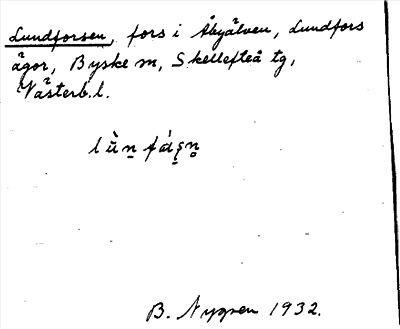 Lundforsen, fors i Åbyälven, Lundfors
ägor, Byske m, Skellefteå tg,
Västerb. l.
B. Nygren 1932.